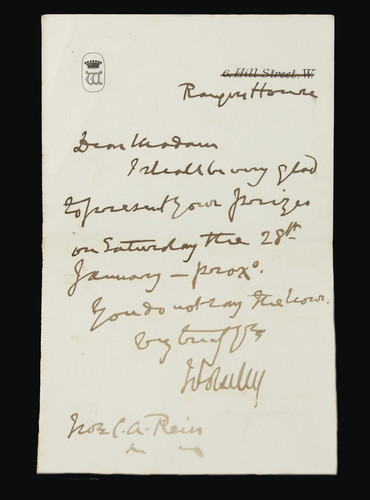 6, Hill Street. W.
Rangers House
Dear Madam
I shall be very glad
to present your prizes
on Saturday the 28th
January – proxo.
You do not say the hour.
Very truly yrs
Wolseley
C. A. Reiss